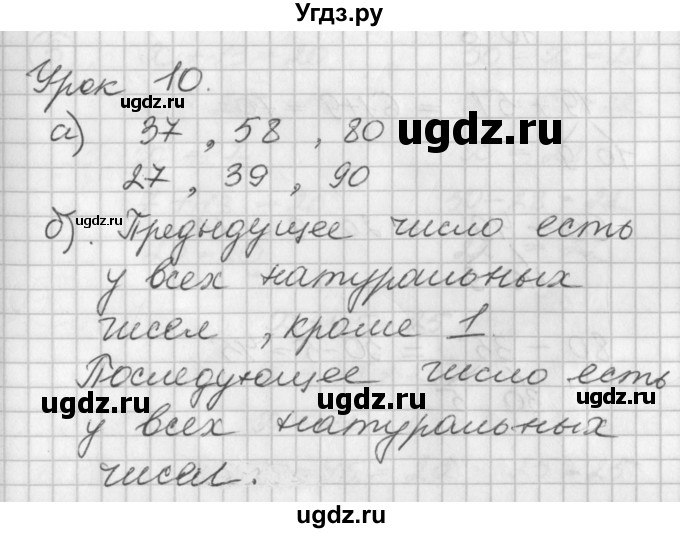 Угдз.ру
Урок 10.
а) 37, 58, 80
27, 39, 90
б). Предыдущее число есть
у всех натуральных
чисел, кроме 1.
Последующее число есть
у всех натуральных
чисел.
ugdz.ru
ugdz.ru
ugdz.ru
ugdz.ru
ugdz.ru
ugdz.ru
ugdz.ru
ugdz.ru
ugdz.ru